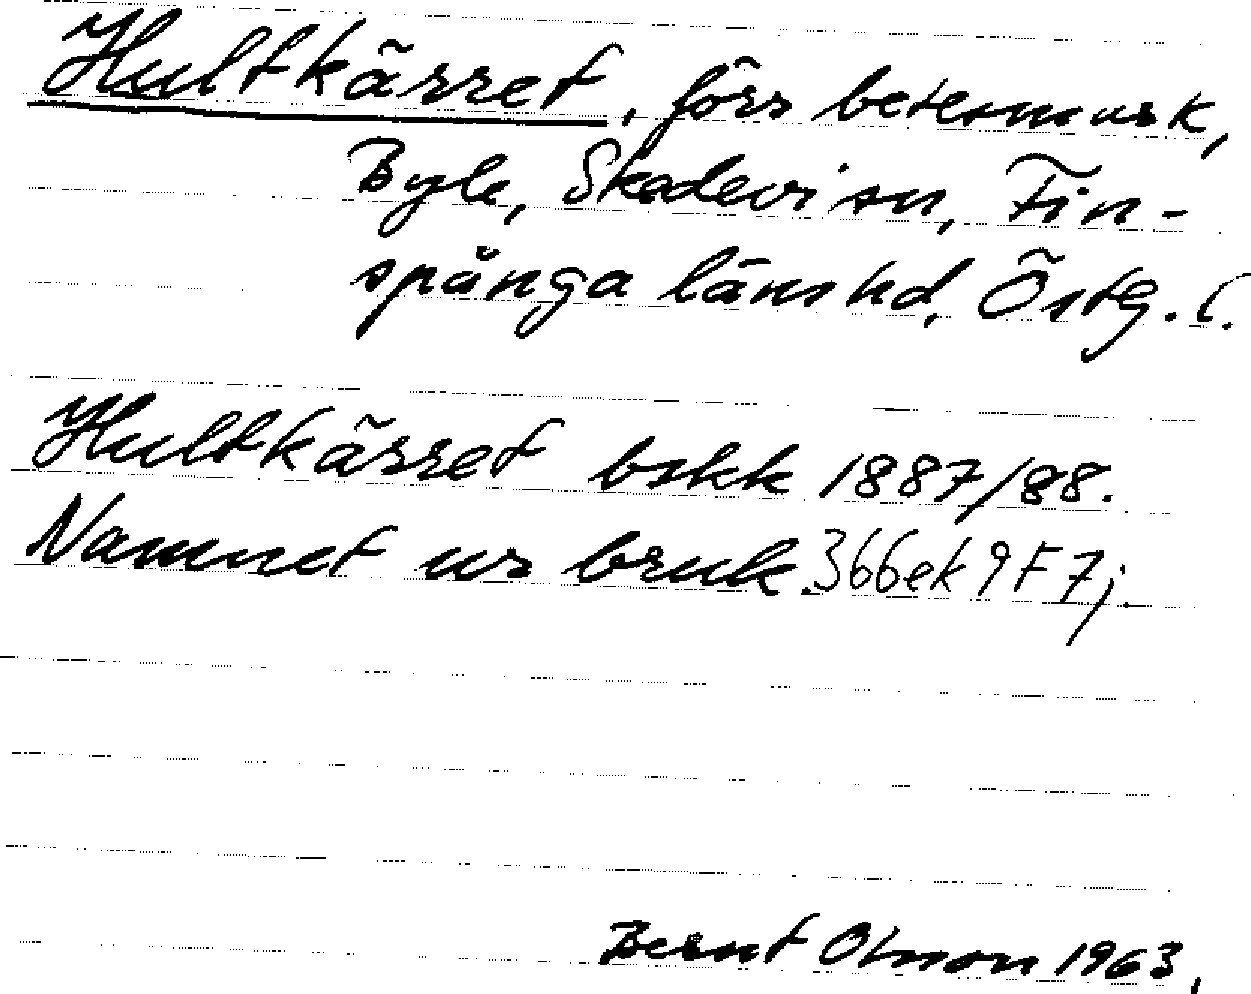 Hultkärret, förr betesmark,
Byle, Skedevi sn, Fin-
spånga länshd, Östg. l.
Hultkärret bskk 1887/88.
Namnet ur bruk. 366ek 9F7j.
Bernt Olsson 1963.